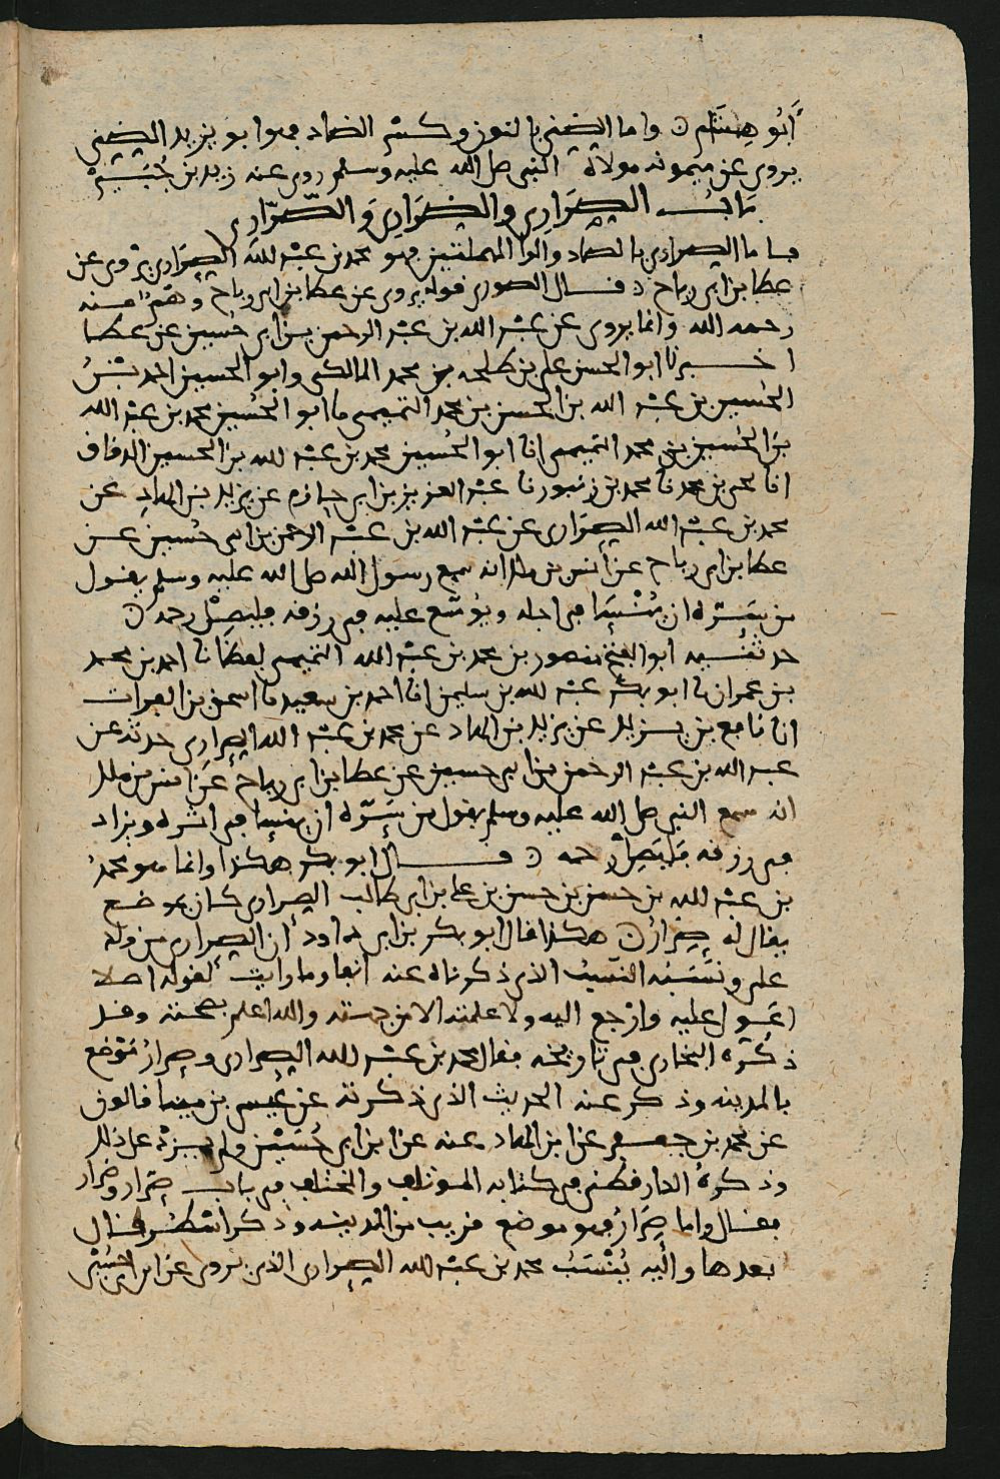 أَبُو هِشَام ۞ واما الضِنِي بالنون وكسر الضاد فهوا بو يزيد الضِني
يروى عن ميمونه مولاة النبى صلى الله عليه وسلم روى عنه زيد بن جُبَيْر
بَابُ الصِرَارِي والضِرَارِي وَالصَّرّارِي
فاما الصِراري بالصاد والرا المهملتين فهو محمد بن عبد الله الصِرَاري يَرْوى عن
عطا بن ابى رباح ۞ قال الصورى قوله يروى عن عطا بن ابى رباح وهَمٌ منه
رحمه الله وانما يروى عن عبد الله بن عبد الرحمن بن ابى حُسين عن عطا
اخبرنا ابو الحسن على بن طلحه بن محمد المالكى وابو الحسين احمد بن
الحُسين بن عبد الله بن الحسن بن محمد التميمى نا ابو الحُسين محمد بن عبد الله
بن الحُسين بن محمد التميمى انا ابو الحُسين محمد بن عبد الله بن الحسين الدقاق
انا يحيى بن محمد نا محمد بن زنبور نا عبد العزيز بن ابى حازم عن يزيد بن الهاد عن
محمد بن عبد الله الصِرَارى عن عبد الله بن عبد الرحمن بن ابى حُسين عن
عطا بن ابى رباح عن أنس بن ملك انه سمع رسول الله صلى الله عليه وسلم يقول
من سَرّه ان يُنْسَا في اجله ويُوسّع عليه في رزقه فليَصِلْ رحمه ۞
حدثنيه ابوا الفتح منصور بن محمد بن عبد الله التميمى لفظًا نا احمد بن محمد
بن عمران نا ابو بكر عبد الله بن سليمن انا احمد بن سعيد نا اسحق بن الفرات
انا نافع بن يزيد عن يزيد بن الهاد عن محمد بن عبد الله الصِرارِى حدثه عن
عبد الله بن عبد الرحمن بن ابى حسين عن عطا بن ابى رباح عن انس بن ملك
انه سمع النبى صلى الله عليه وسلم يقول من سَرّه ان يُنسا في اثره ويزاد
في رزقه فليَصِلْ رحمه ۞ قال ابو بكر هكذا وانما هو محمدُ
بن عبد الله بن حسن بن حسن بن على بن ابى طالب الصِرارى كان بموضع
يقال له صِرَارٌ ۞ هكذا قال ابو بكر بن ابى داود أن الصِرارى من ولد
على ونَسَبَه النسَبُ الذى ذكرناه عنه انفا وما رايت لقوله اصلا
اعَوّل عليه وارْجع اليه ولا علمته الا من جهته والله اعلم بصحته وقد
ذكره البخارى في تاريخه فقال محمد بن عبد الله الصِرارى وصِرارُ مَوْضع
بالمدينه وذكر عنه الحديث الذى ذكرته عن عيسى بن مينا قالون
عن محمد بن جعفر عن ابن الهاد عنه عن ابن ابى حُسَيْن ولم يَزِدْ على ذلك
وذكرهُ الدارقطنى في كتابه الموتلف والمختلف في باب صِرار وضِرار
فقال واما صِرَارُ فهو موضع قريب من المدينه وذكر قال
بعدها واليه يُنْسَبُ محمد بن عبد الله الصِرارى الذى يروى عن ابن ابى حُسَيْن